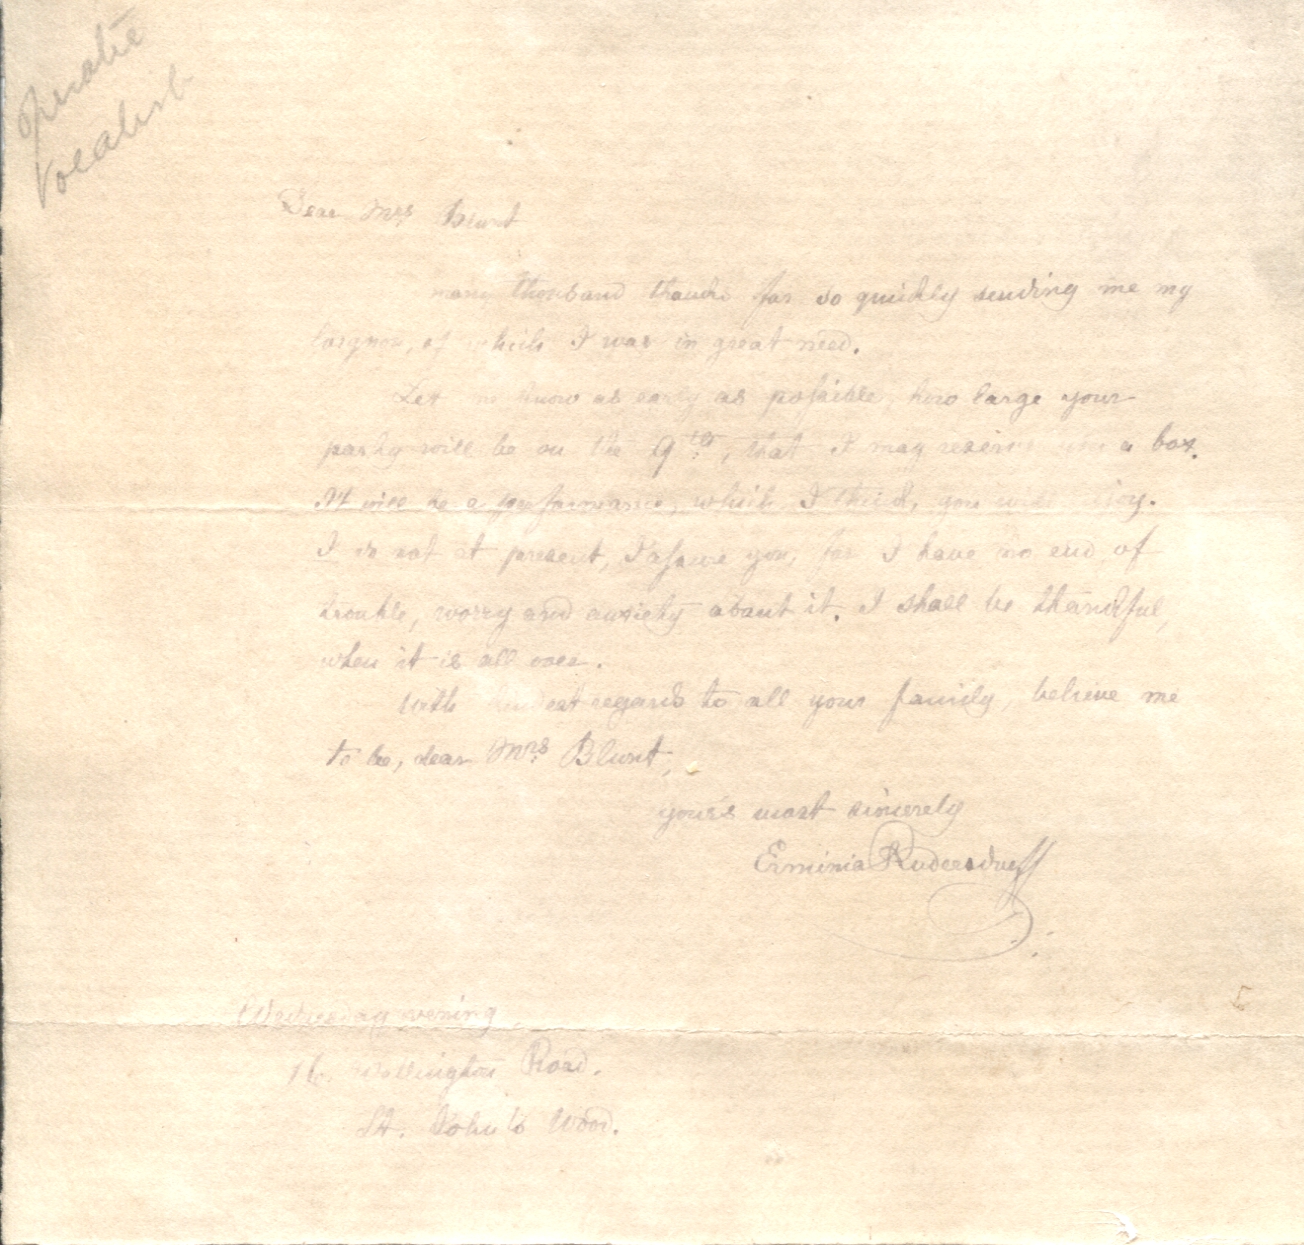 Operatic
Vocalist
Dear Mrs Blunt
many thousand thanks for so quickly sending me my
lorgnon, of which I was in great need.
Let me know as early as possible, how large your
party will be on the 9th, that I may reserve you a box.
It will be a performance, which, I think, you will enjoy.
I do not at present, I assure you, for I have no end of
trouble, worry and anxiety about it. I shall be thankful,
when it is all over.
With kindest regards to all your family, believe me
to be, dear Mrs Blunt,
your's most sincerely
Erminia Rudersdorff
Wednesday evening
16, Wellington Road.
St. John's Wood.